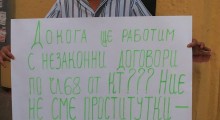 Докога ще работим
с незаконни договори
по чл.68 от КТ??? Ние
не сме проститутки –